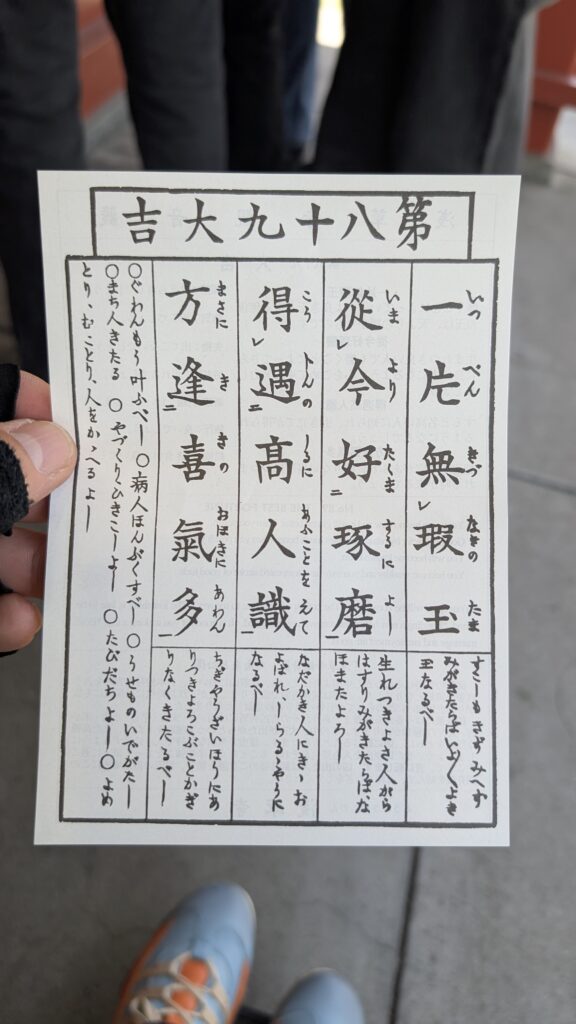 第八十九大吉
一片無瑕玉
いつ ぺん きづ なきの たま
すこしもきず みへず
みがきたらばいよ〱よき
玉なるべし
從今好琢磨
いま より たくま するに よし
生れつきよき人がら
はすりみがきたらば、な
ほまたよろし
得遇高人識
こう しるに あふことを えて
なだかき人にきゝお
よばれ、しらるゝやうに
なるべし
方逢喜氣多
まさに き きの おほきに あわん
ちぎやうざいほうにあ
りつきよろこぶことかぎ
りなくきたるべし
〇ぐわんもう叶ふべし 〇病人ほんぶくすべし 〇うせものいでがたし
〇まち人きたる 〇やづくりひきこしよし 〇たびだちよし〇よめ
とり、むことり、人をかゝへるよし